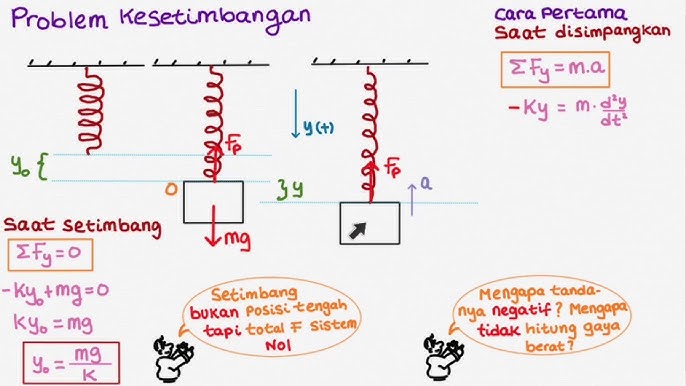 Problem Kesetimbangan
Cara Pertama
Saat disimpangkan
ΣFy = m.a
-Ky = m. d²y/dt²
y(+)
Fp
Fp
y₀ {
O
} y
a
mg
Saat setimbang
ΣFy = 0
-Ky₀ + mg = 0
Ky₀ = mg
y₀ = mg/K
Setimbang
bukan posisi tengah
tapi total F sistem
Nol
Mengapa tanda-
nya negatif? Mengapa
tidak hitung gaya
berat?